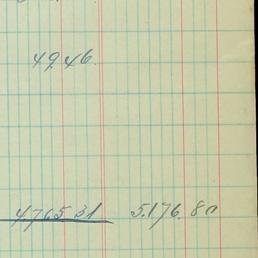 49.46
4.765 31 5.176.80